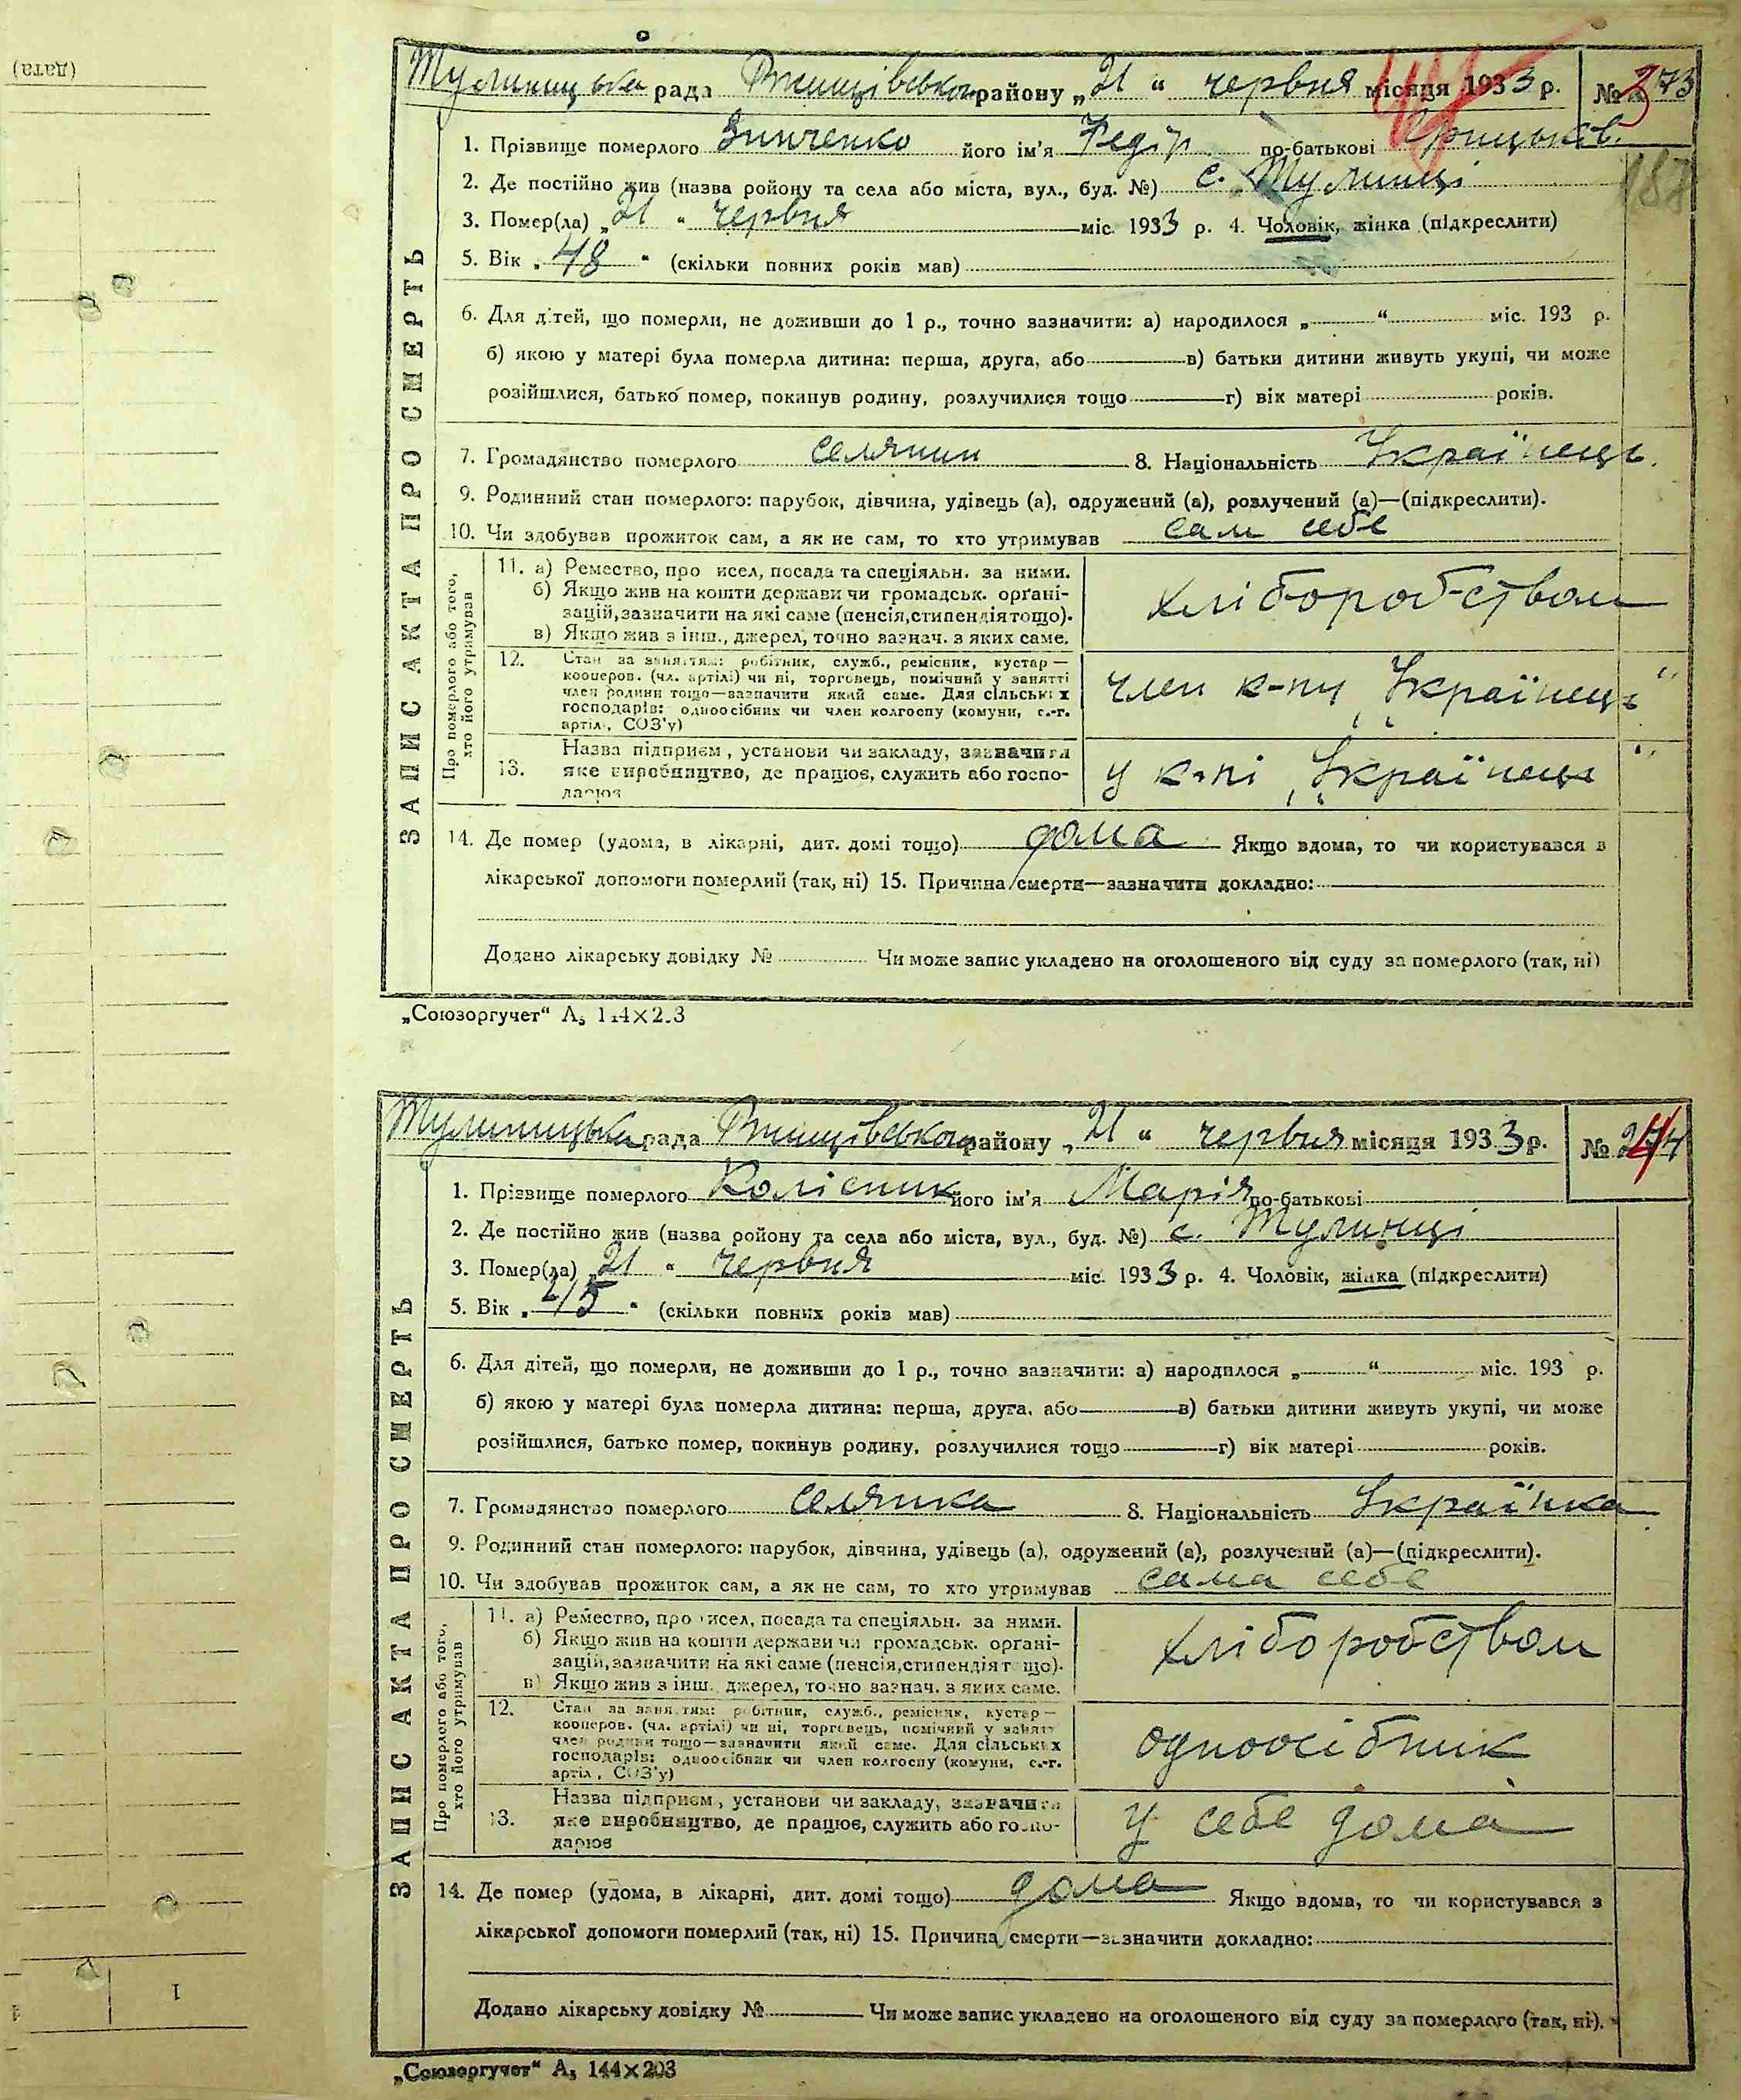 (дата)
Тулинцька рада Ржищівського району „21“ червня місяця 1933 р. № 273
187
1. Прізвище померлого Зинченко його ім'я Федір по-батькові Грицьків.
2. Де постійно жив (назва ройону та села або міста, вул., буд. №) с. Тулинці
3. Помер(ла) „21“ червня міс. 1933 р. 4. Чоловік, жінка (підкреслити)
5. Вік „48“ (скільки повних років мав)
6. Для дітей, що померли, не доживши до 1 р., точно зазначити: а) народилося „ “ міс. 193 р.
б) якою у матері була померла дитина: перша, друга, або в) батьки дитини живуть укупі, чи може
розійшлися, батько помер, покинув родину, розлучилися тощо г) вік матері років.
7. Громадянство померлого селянин 8. Національність Українець.
9. Родинний стан померлого: парубок, дівчина, удівець (а), одружений (а), розлучений (а)—(підкреслити).
10. Чи здобував прожиток сам, а як не сам, то хто утримував сам себе
ЗАПИС АКТА ПРО СМЕРТЬ
Про померлого або того,
хто його утримував
11. а) Ремество, про исел, посада та спеціяльн. за ними.
б) Якщо жив на кошти держави чи громадськ. орґані-
зацій, зазначити на які саме (пенсія, стипендія тощо).
в) Якщо жив з інш., джерел, точно зазнач. з яких саме.
хліборобством
12. Стан за заняттям: робітник, служб., ремісник, кустар—
кооперов. (чл. артілі) чи ні, торговець, помічний у занятті
член родини тощо—зазначити який саме. Для сільських
господарів: одноосібник чи член колгоспу (комуни, с.-г.
артіл., СОЗ'у)
член к-пу „Українець“
13. Назва підприєм., установи чи закладу, зазначити
яке виробництво, де працює, служить або госпо-
дарює
у к-пі „Українець“
14. Де помер (удома, в лікарні, дит. домі тощо) дома Якщо вдома, то чи користувався з
лікарської допомоги померлий (так, ні) 15. Причина смерти—зазначити докладно:
Додано лікарську довідку № Чи може запис укладено на оголошеного від суду за померлого (так, ні)
„Союзоргучет“ А₅ 144×203
Тулиницька рада Ржищівського району „21“ червня місяця 1933 р. № 274
1. Прізвище померлого Колісник його ім'я Марія по-батькові
2. Де постійно жив (назва ройону та села або міста, вул., буд. №) с. Тулинці
3. Помер(ла) „21“ червня міс. 1933 р. 4. Чоловік, жінка (підкреслити)
5. Вік „45“ (скільки повних років мав)
6. Для дітей, що померли, не доживши до 1 р., точно зазначити: а) народилося „ “ міс. 193 р.
б) якою у матері була померла дитина: перша, друга, або в) батьки дитини живуть укупі, чи може
розійшлися, батько помер, покинув родину, розлучилися тощо г) вік матері років.
7. Громадянство померлого селянка 8. Національність Українка
9. Родинний стан померлого: парубок, дівчина, удівець (а), одружений (а), розлучений (а)—(підкреслити).
10. Чи здобував прожиток сам, а як не сам, то хто утримував сама себе
ЗАПИС АКТА ПРО СМЕРТЬ
Про померлого або того,
хто його утримував
11. а) Ремество, про исел, посада та спеціяльн. за ними.
б) Якщо жив на кошти держави чи громадськ. орґані-
зацій, зазначити на які саме (пенсія, стипендія тощо).
в) Якщо жив з інш. джерел, точно зазнач. з яких саме.
хліборобством
12. Стан за заняттям: робітник, служб., ремісник, кустар—
кооперов. (чл. артілі) чи ні, торговець, помічний у занятт
член родини тощо—зазначити який саме. Для сільських
господарів: одноосібник чи член колгоспу (комуни, с.-г.
артіл., СОЗ'у)
одноосібник
13. Назва підприєм., установи чи закладу, зазначити
яке виробництво, де працює, служить або госпо-
дарює
у себе дома
14. Де помер (удома, в лікарні, дит. домі тощо) дома Якщо вдома, то чи користувався з
лікарської допомоги померлий (так, ні) 15. Причина смерти—зазначити докладно:
Додано лікарську довідку № Чи може запис укладено на оголошеного від суду за померлого (так, ні).
„Союзоргучет“ А₅ 144×203
1